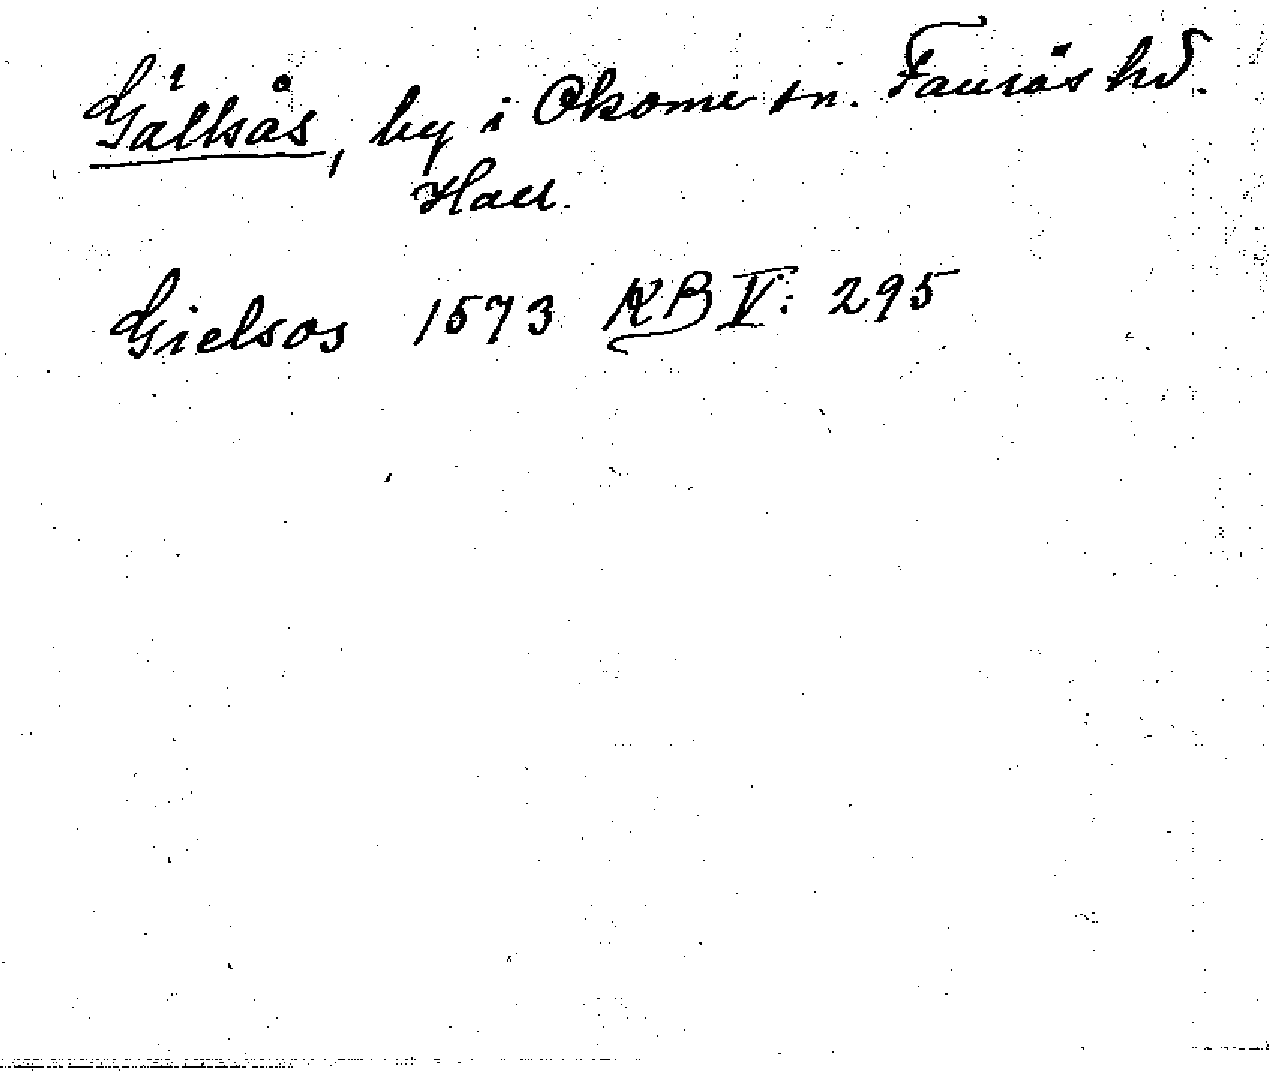 Gälsås, by i Okome sn. Faurås hd.
Hall.
Gielsos 1573 KB V: 295